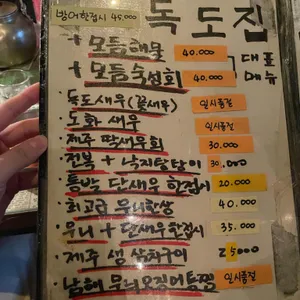 방어한접시 45.000
독도집
+ 모듬해물 40.000 대표
+ 모듬숙성회 40.000 메뉴
· 독도새우(꽃새우) 일시품절
· 도화새우 일시품절
· 제주 딱새우회 30.000
· 전복 + 낙지탕탕이 30.000
· 통박 단새우 한접시 20.000
· 최고급 우니한상 40.000
· 우니 + 단새우한접시 35.000
· 제주 생 갈치구이 25000
· 남해 무늬오징어통찜 일시품절